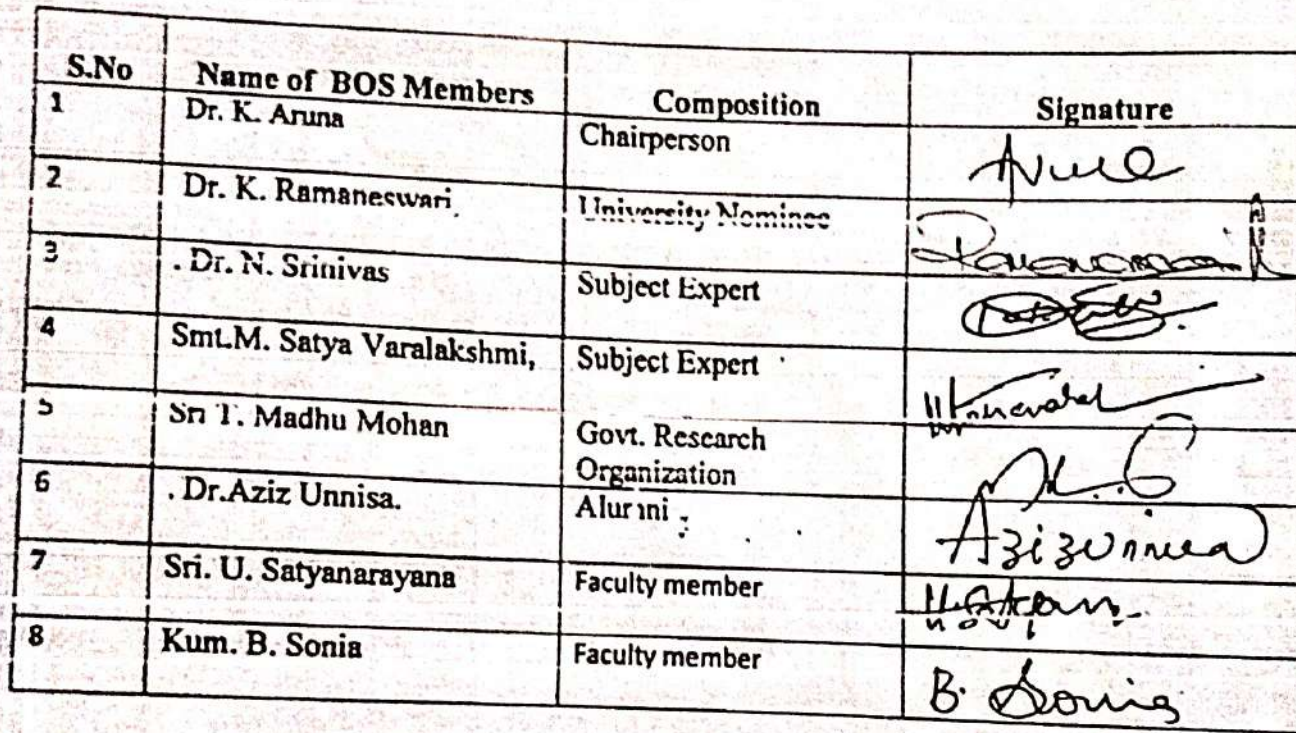 S.No Name of BOS Members Composition Signature
1 Dr. K. Aruna Chairperson
2 Dr. K. Ramaneswari University Nominee
3 . Dr. N. Srinivas Subject Expert
4 Smt.M. Satya Varalakshmi, Subject Expert
5 Sri T. Madhu Mohan Govt. Research
Organization
6 . Dr.Aziz Unnisa. Alumni Azizunnisa
7 Sri. U. Satyanarayana Faculty member
8 Kum. B. Sonia Faculty member B. Sonia